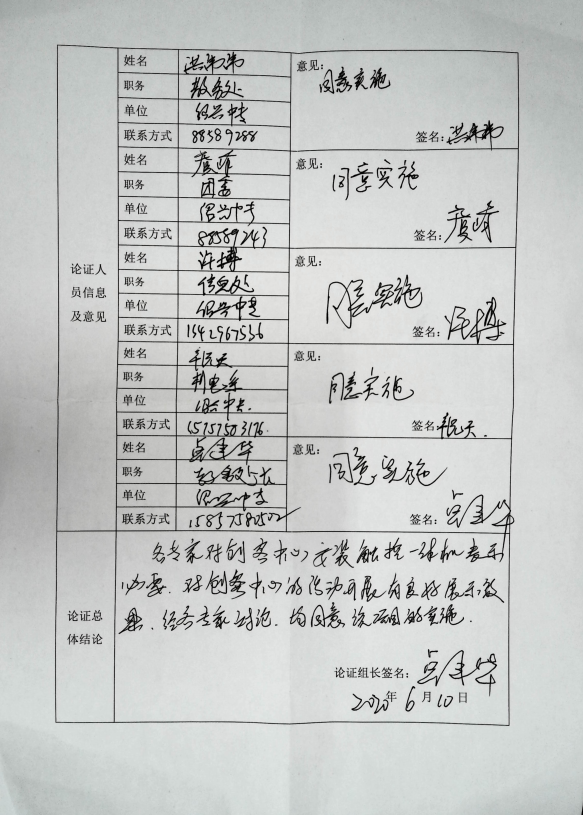 论证人
员信息
及意见
姓名 洪弟弟
职务 教务处
单位 绍兴中专
联系方式 88589288
意见：
同意实施
签名：洪弟弟
姓名
职务 团委
单位 绍兴中专
联系方式 88589243
意见：
同意实施
签名：
姓名 许搏
职务 信息处
单位 绍兴中专
联系方式
意见：
同意实施
签名：许搏
姓名
职务 机电系
单位 绍兴中专
联系方式 15757503176
意见：
同意实施
签名：
姓名
职务
单位 绍兴中专
联系方式 15857580502
意见：
同意实施
签名：
论证总
体结论
各专家对创客中心安装触控一体机表示
必要，对创客中心的活动开展有良好展示效
果，经各专家讨论，均同意该项目的实施。
论证组长签名：
2020年6月10日